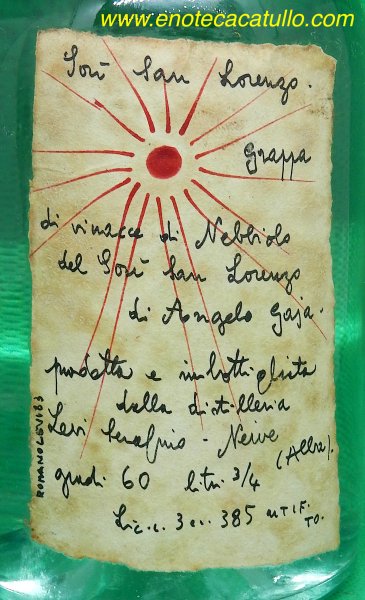 www.enotecacatullo.com
Sorì San Lorenzo.
Grappa
di vinacce di Nebbiolo
del Sorì San Lorenzo
di Angelo Gaja.
prodotta e imbottigliata
dalla distilleria
Levi Serafino - Neive
(Alba).
gradi 60 litri 3/4
Lic. n. 385 UTIF.
TO.
ROMANO LEVI 83